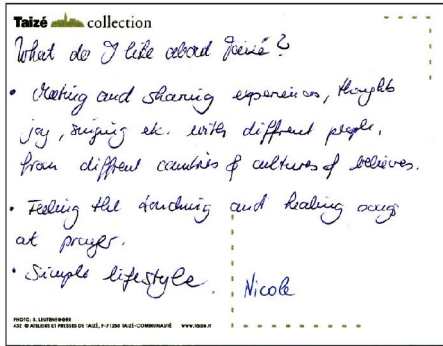 Taizé collection
What do I like about Taizé?
• Meeting and sharing experiences, thoughts
joy, singing etc. with different people,
from different countries & cultures & believes.
• Feeling the touching and healing songs
at prayer.
• Simple lifestyle.
Nicole
PHOTO: S. LEUTENEGGER
432 © ATELIERS ET PRESSES DE TAIZÉ, F-71250 TAIZÉ-COMMUNAUTÉ www.taize.fr